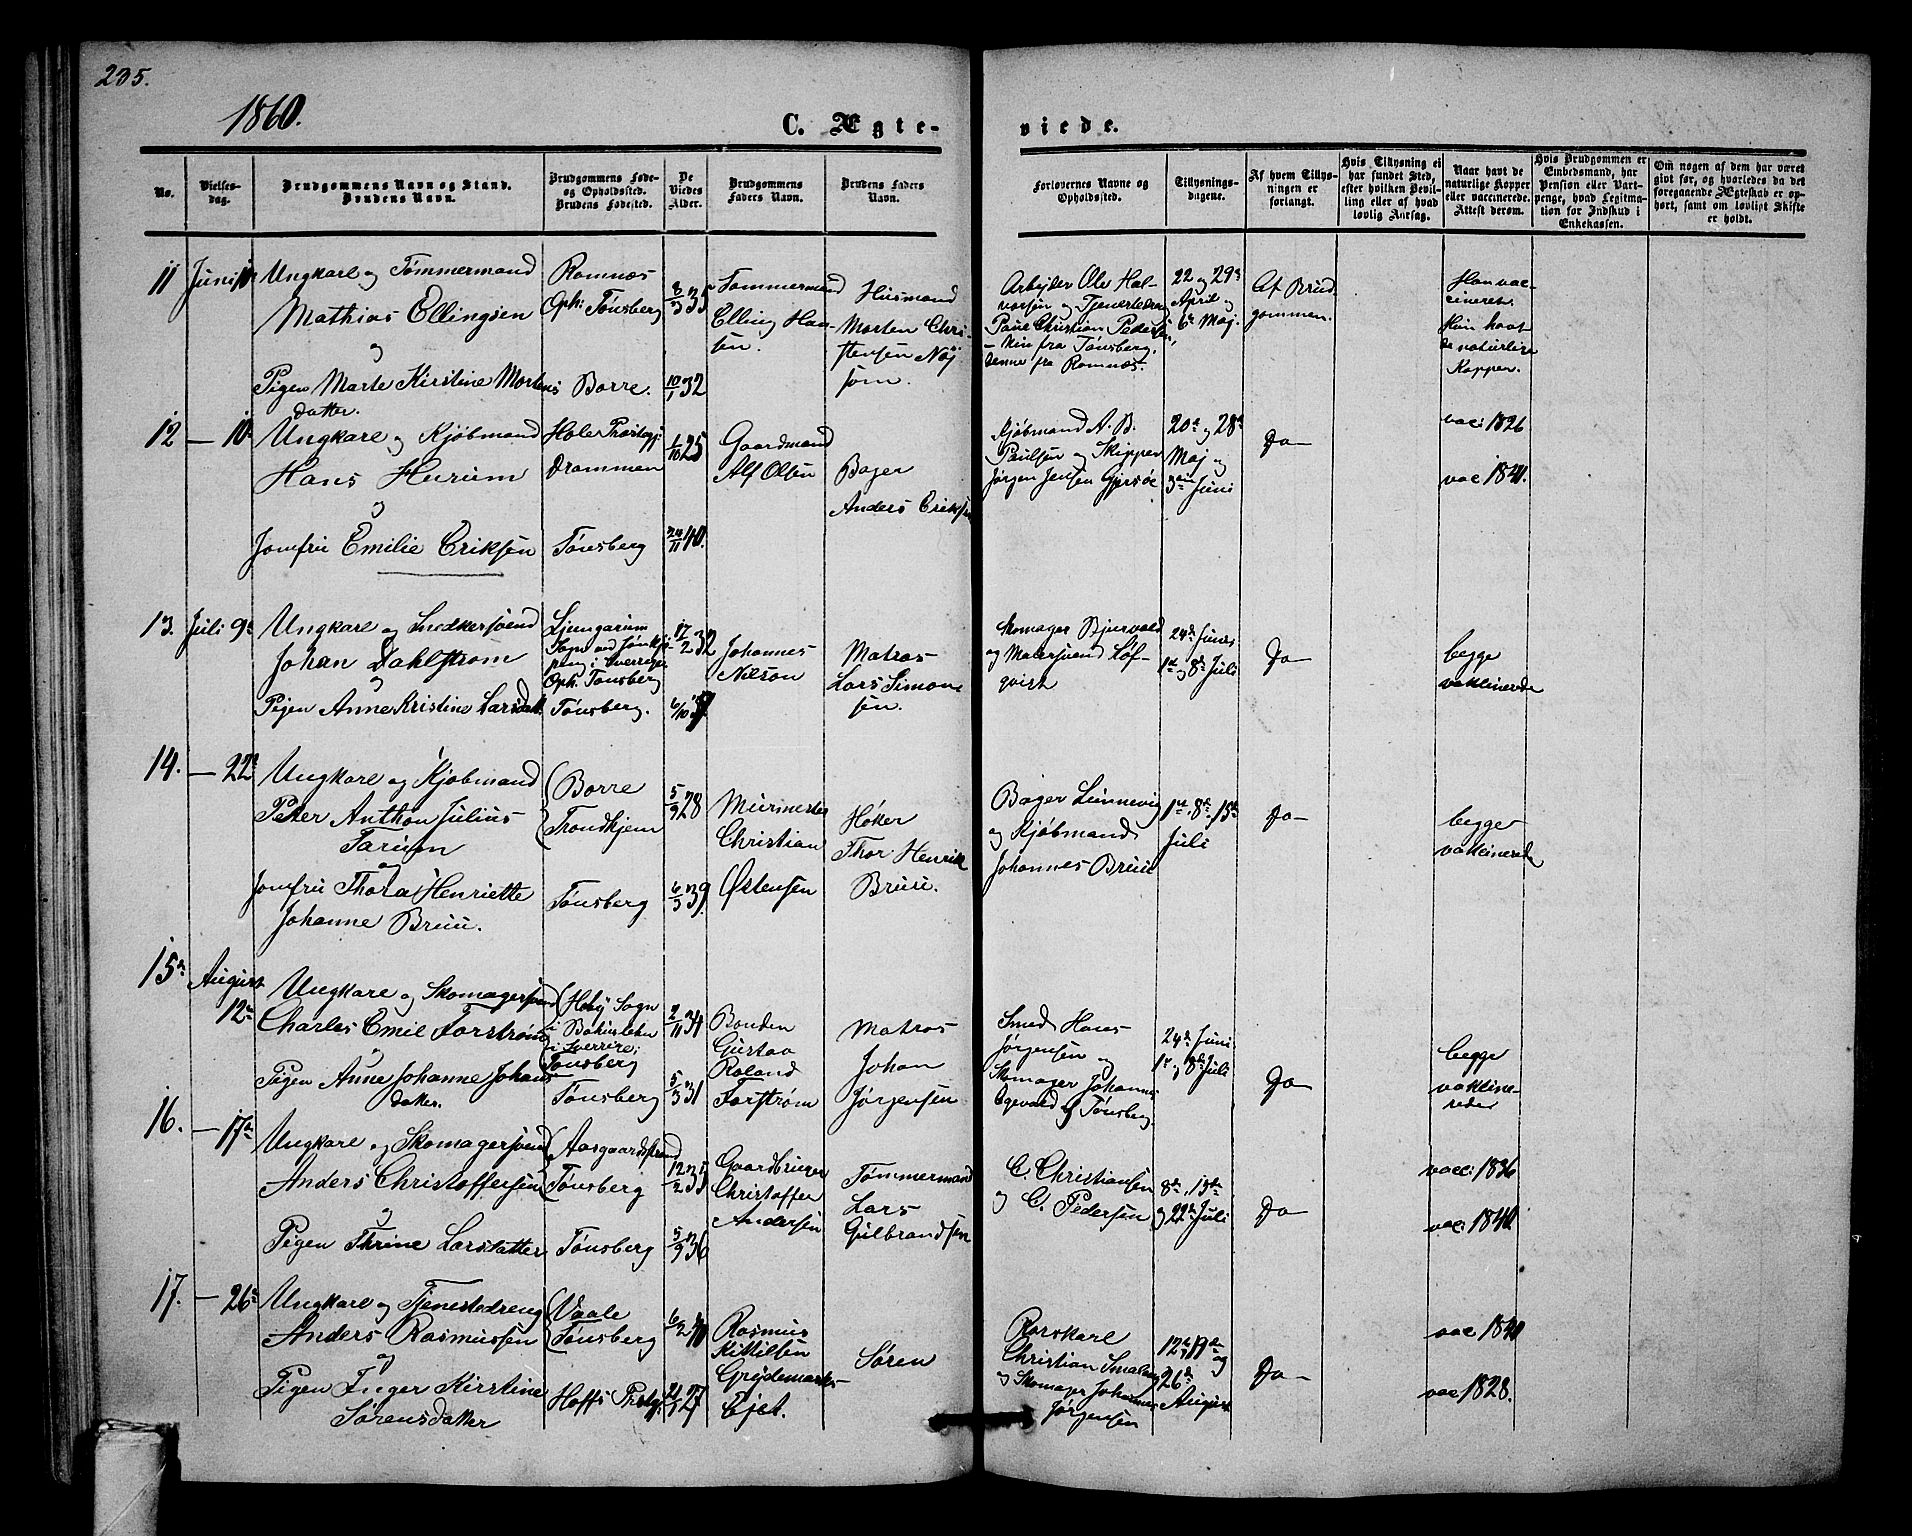 235.
1860.
C. Ægte-
viede.
No.
Vielses-
dag.
Brudgommens Navn og Stand.
Brudens Navn.
Brudgommens Føde-
og Opholdssted.
Brudens Fødested.
De
Viedes
Alder.
Brudgommens
Faders Navn.
Brudens Faders
Navn.
Forlovernes Navne og
Opholdssted.
Tillysnings-
dagene.
Af hvem Tillys-
ningen er
forlangt.
Hvis Tillysning ei
har fundet Sted,
efter hvilken Bevil-
ling eller af hvad
lovlig Aarsag.
Naar havt de
naturlige Kopper
eller vaccinerede.
Attest derom.
Hvis Brudgommen er
Embedsmand, har
Pension eller Vart-
penge, hvad Legitima-
tion for Indskud i
Enkekassen.
Om nogen af dem har været
givt før, og hvorledes da det
foregaaende Ægteskab er op-
hørt, samt om lovligt Skifte
er holdt.
11
Juni 10
Ungkarl og Tømmermand
Mathias Ellingsen
og
Pigen Marte Kirstine Mortens
datter.
Romnæs
Oph: Tønsberg
Borre.
8/3 35
10/1 32
Tømmermand
Elling Han-
sen.
Husmand
Morten Chri-
stensen Nøj
som.
Arbejder Ole Hal-
vorsen og Tjenestedreng
Paul Christian Peders
- hin fra Tønsberg,
denne fra Romnæs.
22 og 29
April og
6te Maj.
Af Brud
gommen.
Han vac-
cineret.
Hun havt
de naturlige
Kopper.
12
— 10
Ungkarl og Kjøbmand
Hans Hurum
og
Jomfru Emilie Eriksen
Hole Præstegj:
Drammen
Tønsberg
1/10 25
24/11 40.
Gaardmand
Alf Olsen
Bager
Anders Eriksen
Kjøbmand A. B.
Paulsen og Skipper
Jørgen Jensen Gjersøe
20de og 28de
Maj og
3die Juni
Do—
vac: 1826
vac 1841.
13.
Juli 9de
Ungkarl og Snedkersvend
Johan Dahlstrøm
og
Pigen Anne Kristine Larsdatt.
Ljungarum
Sogn ved Jønkjø-
ping i Sverrige
Oph: Tønsberg
Tønsberg.
17/2 32
6/10 37.
Johannes
Nilson
Matros
Lars Simon
sen.
Skomager Bjurvald
og Malersvend Løf-
qvist
24de Juni
1ste og 8de Juli
Do
begge
vaklinerede
14.
— 22de
Ungkarl og Kjøbmand
Peter Anthon Julius
Farum
og
Jomfru Thora Henriette
Johanne Bruu.
Borre
Trondhjem
Tønsberg
5/9 28
6/3 39.
Murmester
Christian
Østensen
Høker
Thor Henrik
Bruu.
Bager Linnevig
og Kjøbmand
Johannes Bruu
1ste, 8de, 15de
Juli
Do—
begge
vaklinerede
15de
August
12te
Ungkarl og Skomagersvend
Charles Emil Forstrøm
og
Pigen Anne Johanne Johans
datter.
Heby Sogn
i Bohuslehn
i Sverrige;
Tønsberg
Tønsberg
2/11 34
5/3 31
Bonden
Gustav
Roland
Forstrøm
Matros
Johan
Jørgensen
Smed Hans
Jørgensen og
Skomager Johannes
Egevald af Tønsberg
24de Juni
1ste og 8de Juli
Do
begge
vakline-
rede
16.
— 17de
Ungkarl og Skomagersvend
Anders Christoffersen
og
Pigen Thrine Larsdatter
Aasgaardsstrand
Tønsberg
Tønsberg
12/2 35
5/9 36
Gaardbruger
Christoffer
Andersen
Tømmermand
Lars
Gulbrandsen
C. Christiansen
og C. Pedersen
8de, 15de
og 22de Juli
Do—
vacc: 1836
vac: 1840
17.
— 26de
Ungkarl og Tjenestedreng
Anders Rasmussen
og
Pigen Inger Kirstine
Sørensdatter
Vaale
Tønsberg
Hoffs Prstgj:
6/2 40
21/1 27
Rasmus
Kittilsen
Grødemarks
Ejet.
Søren
Rorskarl
Christian Smaling
og Skomager Johannes
Jørgensen
12te, 19de og
26de
August
Do—
vac 1840
vac 1828.